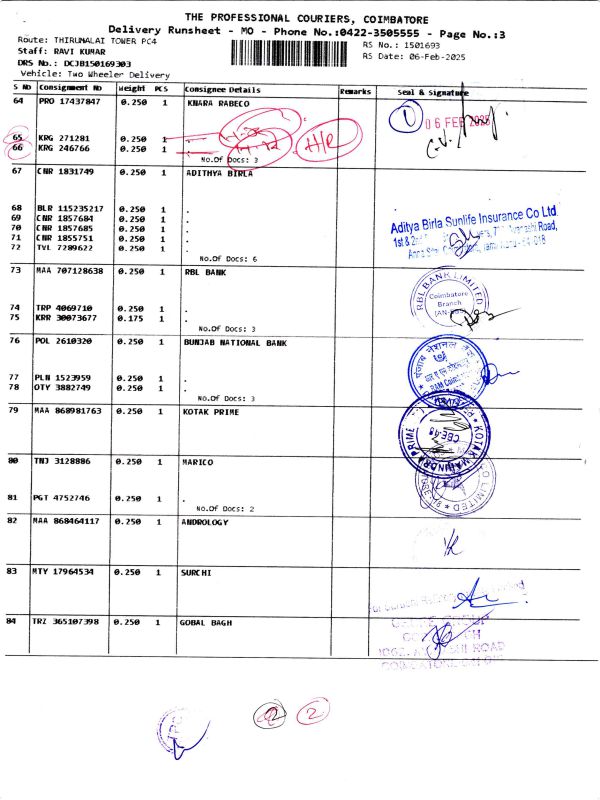 THE PROFESSIONAL COURIERS, COIMBATORE
Delivery Runsheet - MO - Phone No.:0422-3505555 - Page No.:3
Route: THIRUMALAI TOWER PC4
RS No.: 1501693
Staff: RAVI KUMAR
RS Date: 06-Feb-2025
DRS No.: DCJB150169303
Vehicle: Two Wheeler Delivery
S No Consignment No Weight PCS Consignee Details Remarks Seal & Signature
64 PRO 17437847 0.250 1 KNARA RABECO
1
06 FEB 2025
65 KRG 271281 0.250 1 .
66 KRG 246766 0.250 1 .
No.Of Docs: 3
67 CNR 1831749 0.250 1 ADITHYA BIRLA
68 BLR 115235217 0.250 1 .
69 CNR 1857684 0.250 1 .
70 CNR 1857685 0.250 1 .
71 CNR 1855751 0.250 1 .
72 TVL 7289622 0.250 1 .
No.Of Docs: 6
Aditya Birla Sunlife Insurance Co Ltd
73 MAA 707128638 0.250 1 RBL BANK
RBL BANK LIMITED
Coimbatore
Branch
74 TRP 4069710 0.250 1 .
75 KRR 30073677 0.175 1 .
No.Of Docs: 3
76 POL 2610320 0.250 1 BUNJAB NATIONAL BANK
पंजाब नेशनल
77 PLN 1523959 0.250 1 .
78 OTY 3882749 0.250 1 .
No.Of Docs: 3
79 MAA 868981763 0.250 1 KOTAK PRIME
KOTAK MAHINDRA PRIME
80 TNJ 3128886 0.250 1 MARICO
LIMITED
81 PGT 4752746 0.250 1 .
No.Of Docs: 2
82 MAA 868464117 0.250 1 ANDROLOGY
83 MTY 17964534 0.250 1 SURCHI
84 TRZ 365107398 0.250 1 GOBAL BAGH
GROUP
ROAD
2 2